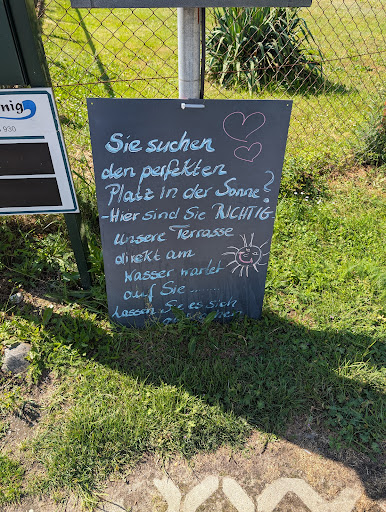 nig
930
Sie suchen
den perfekten
Platz in der Sonne?
-Hier sind Sie RICHTIG-
Unsere Terrasse
direkt am
Wasser wartet
auf Sie......
Lassen Sie es sich